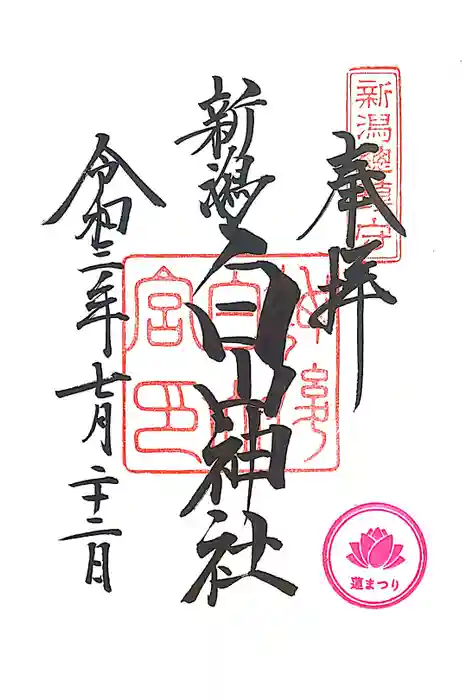 新潟總鎮守
奉拝
新潟白山神社
令和三年七月二十二日
白山
宮印
蓮まつり